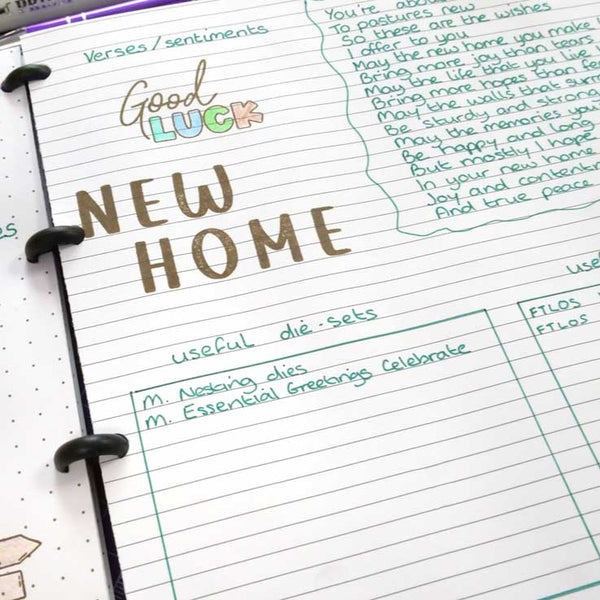 Verses/sentiments
Good
LUCK
NEW
HOME
You're
To pastures new
So these are the wishes
I offer to you
May the new home you make
Bring more joy than tears
May the life that you live
Bring more hopes than
May the walls that
Be sturdy and strong
May the memories you
Be happy and long
But mostly I hope
In your new home
Joy and
And true peace
useful die-sets
M. Nesting dies
M. Essential Greetings Celebrate
FTLOS
FTLOS